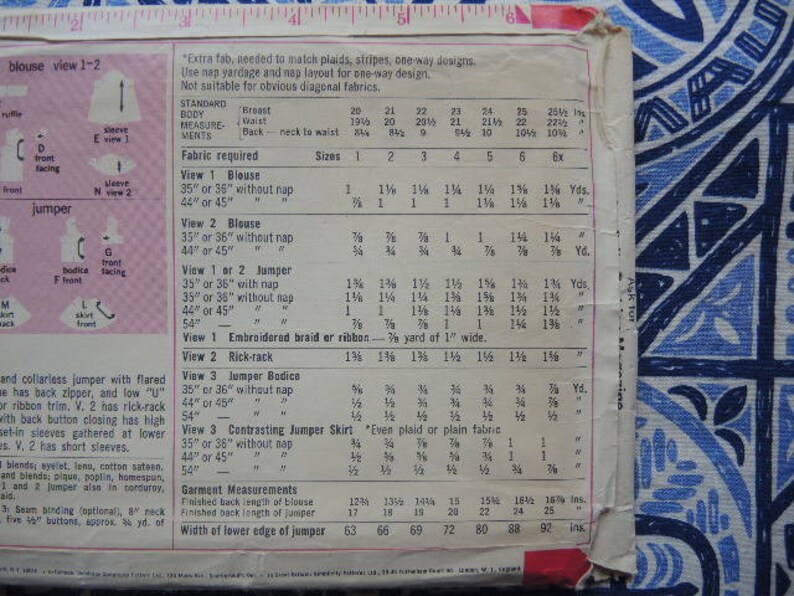 2 3 4 5 6
blouse view 1-2
ruffle
E sleeve view 1
D front facing
front
N sleeve view 2
jumper
G front facing
bodice F front
M
L skirt front
*Extra fab. needed to match plaids, stripes, one-way designs.
Use nap yardage and nap layout for one-way design.
Not suitable for obvious diagonal fabrics.
STANDARD BODY MEASUREMENTS
Breast 20 21 22 23 24 25 25½ Ins.
Waist 19½ 20 20 21 21½ 22 22½ "
Back — neck to waist 8¼ 8½ 9 9½ 10 10½ 10¾ "
Fabric required Sizes 1 2 3 4 5 6 6x
View 1 Blouse
35" or 36" without nap 1 1⅛ 1⅛ 1¼ 1¼ 1⅜ 1⅜ Yds.
44" or 45" " " ⅞ 1 1 1 1⅛ 1⅛ 1⅛ "
View 2 Blouse
35" or 36" without nap ⅞ ⅞ ⅞ 1 1 1¼ 1¼ "
44" or 45" " " ¾ ¾ ¾ ¾ ⅞ ⅞ ⅞ Yd.
View 1 or 2 Jumper
35" or 36" with nap 1⅜ 1⅜ 1½ 1½ 1⅝ 1¾ 1¾ Yds.
35" or 36" without nap 1⅛ 1¼ 1¼ 1⅜ 1⅝ 1¾ 1¾ "
44" or 45" " " 1 1 1⅛ 1⅛ 1⅜ 1½ "
54" — " " ⅞ ⅞ ⅞ 1 1 1¼ 1⅜ "
View 1 Embroidered braid or ribbon — ⅞ yard of 1" wide.
View 2 Rick-rack 1⅜ 1⅜ 1⅜ 1½ 1½ 1½ 1⅝ "
View 3 Jumper Bodice
35" or 36" without nap ⅝ ¾ ¾ ¾ ¾ ¾ ⅞ Yd.
44" or 45" " " ½ ½ ¾ ¾ ¾ ¾ ⅞ "
54" — " " ½ ½ ½ ½ ½ ½ ½ "
View 3 Contrasting Jumper Skirt *Even plaid or plain fabric
35" or 36" without nap ¾ ¾ ⅞ ⅞ ⅞ 1 1 "
44" or 45" " " ½ ⅝ ⅝ ⅝ ¾ 1 1 "
54" — " " ½ ½ ½ ½ ½ ¾ ⅞ "
Garment Measurements
Finished back length of blouse 12¾ 13½ 14¼ 15 15¾ 16½ 16⅞ Ins.
Finished back length of jumper 17 18 19 20 22 24 25 "
Width of lower edge of jumper 63 66 69 72 80 88 92 Ins.
and collarless jumper with flared
ne has back zipper, and low "U"
or ribbon trim. V. 2 has rick-rack
with back button closing has high
set-in sleeves gathered at lower
es. V. 2 has short sleeves.
d blends; eyelet, leno, cotton sateen.
and blends; pique, poplin, homespun,
1 and 2 jumper also in corduroy,
aid.
3: Seam binding (optional), 8" neck
five ½" buttons, approx. ¾ yd. of
Ask for
Magazine